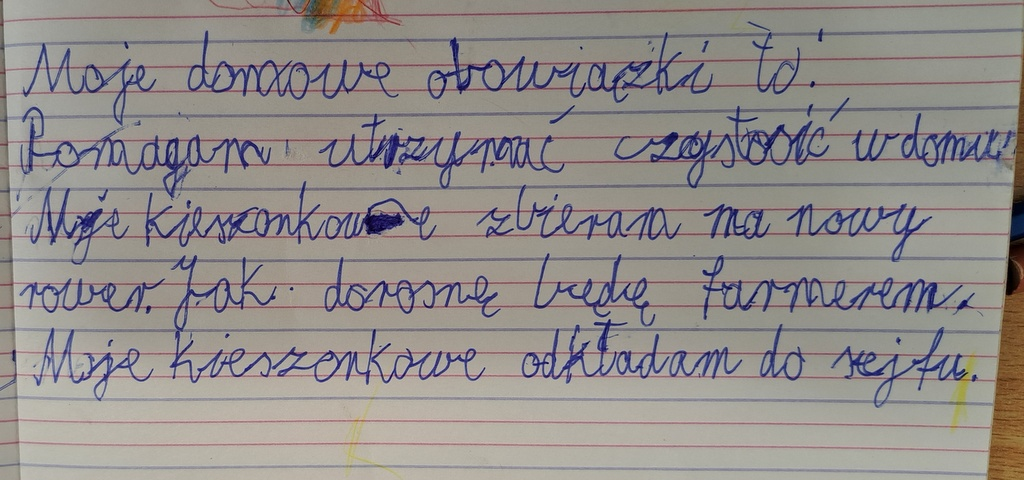 Moje domowe obowiązki to:
Pomagam utrzymać czystość w domu.
Moje kieszonkowe zbieram na nowy
rower. Jak dorosnę będę farmerem.
Moje kieszonkowe odkładam do sejfu.